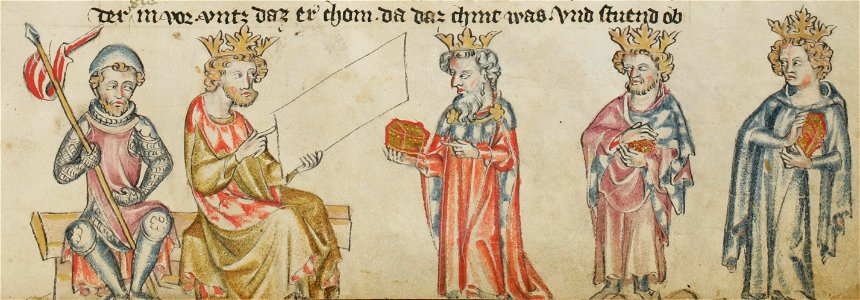 der in vor untz daz er chom. da daz chint was. Vnd stuend ob